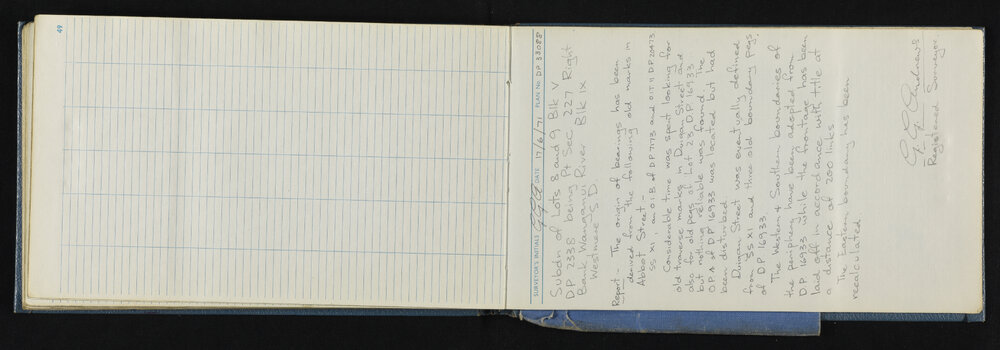 49
SURVEYOR'S INITIALS GGA DATE 17/6/71 PLAN No. DP 33088
Subdn of Lots 8 and 9 Blk V
DP 2338 being Pt Sec 227 Right
Bank Wanganui River Blk IX
Westmere S D
Report - The origin of bearings has been
derived from the following old marks in
Abbot Street -
SS XI, an O.I.B of DP 7173 and O.I.T. II DP 20473
Considerable time was spent looking for
old traverse marks in Durgan Street and
also for old pegs at Lot 23 DP 16933
but nothing reliable was found. The
O.P.A of DP 16933 was located but had
been disturbed
Durgan Street was eventually defined
from SS XI and three old boundary pegs
of DP 16933
The Western & Southern boundaries of
the periphery have been adopted from
DP 16933 while the frontage has been
laid off in accordance with title at
a distance of 200 links
The Eastern boundary has been
recalculated.
G. G. Andrews
Registered Surveyor.